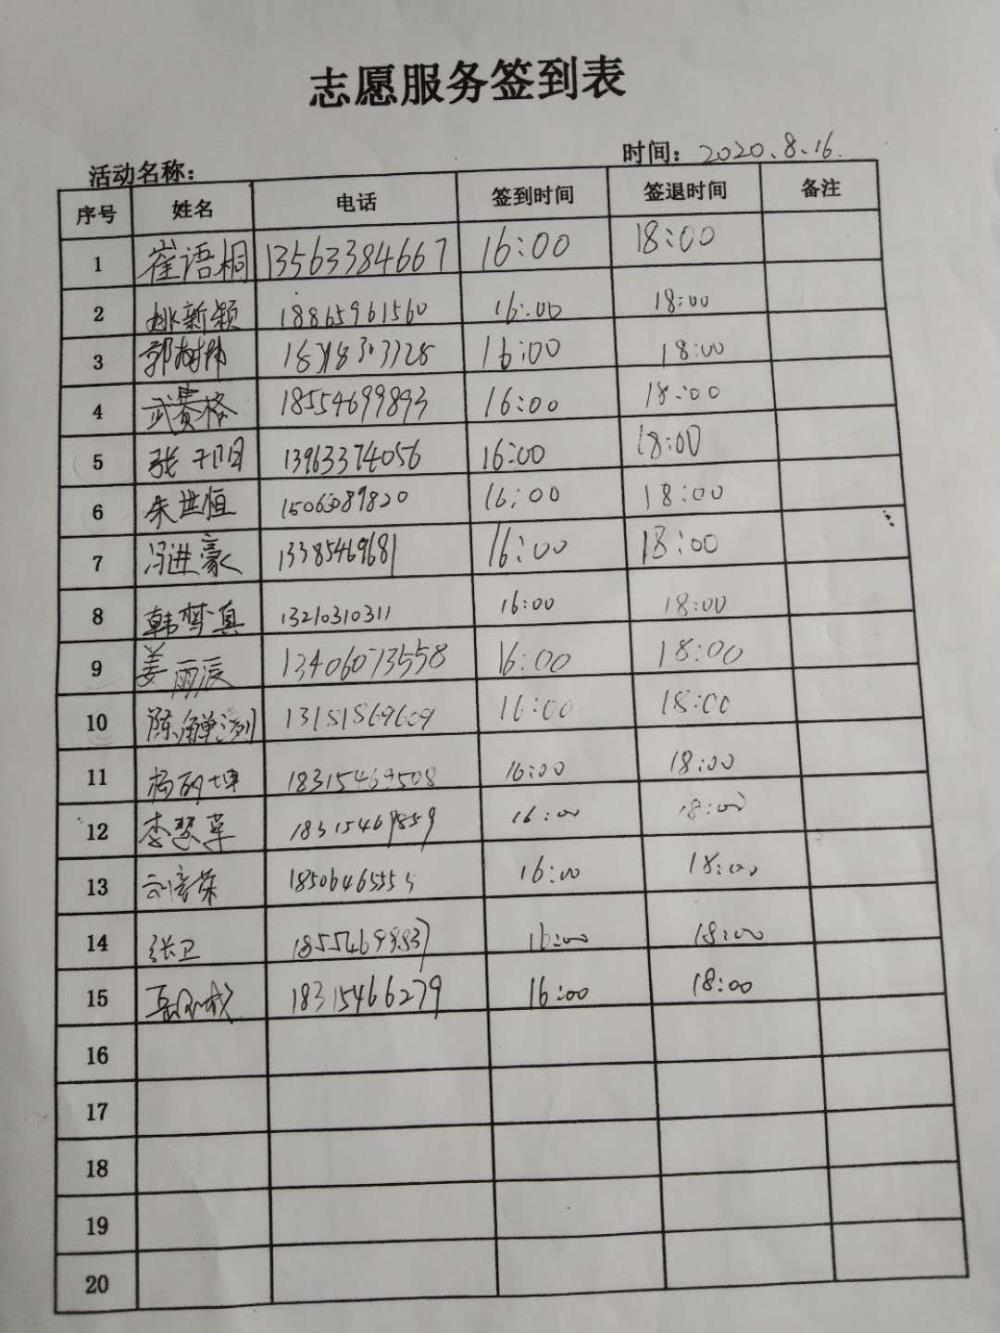 志愿服务签到表
活动名称: 时间: 2020.8.16.
序号 姓名 电话 签到时间 签退时间 备注
1 崔语桐 13563384667 16:00 18:00
2 姚新颖 18865961560 16:00 18:00
3 郭树伟 16:00 18:00
4 武赛格 18554699893 16:00 18:00
5 张 13963374056 16:00 18:00
6 朱世恒 16:00 18:00
7 冯进豪 13385469681 16:00 18:00
8 韩梦真 13210310311 16:00 18:00
9 姜雨辰 13406073558 16:00 18:00
10 陈 13181869609 16:00 18:00
11 杨 坤 18315469508 16:00 18:00
12 李慧草 18315469859 16:00 18:00
13 16:00 18:00
14 张卫 16:00 18:00
15 18315466279 16:00 18:00
16
17
18
19
20